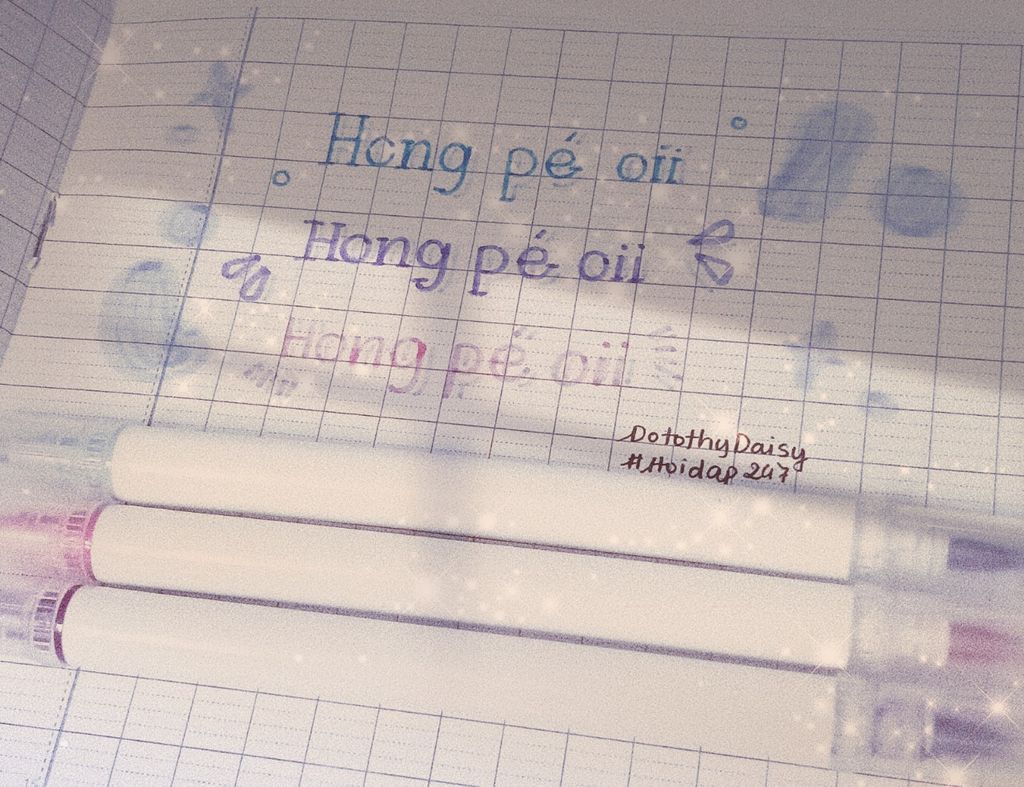 Hong pé oii
Hong pé oii
Hong pé oii
DotothyDaisy
#Hoidap247